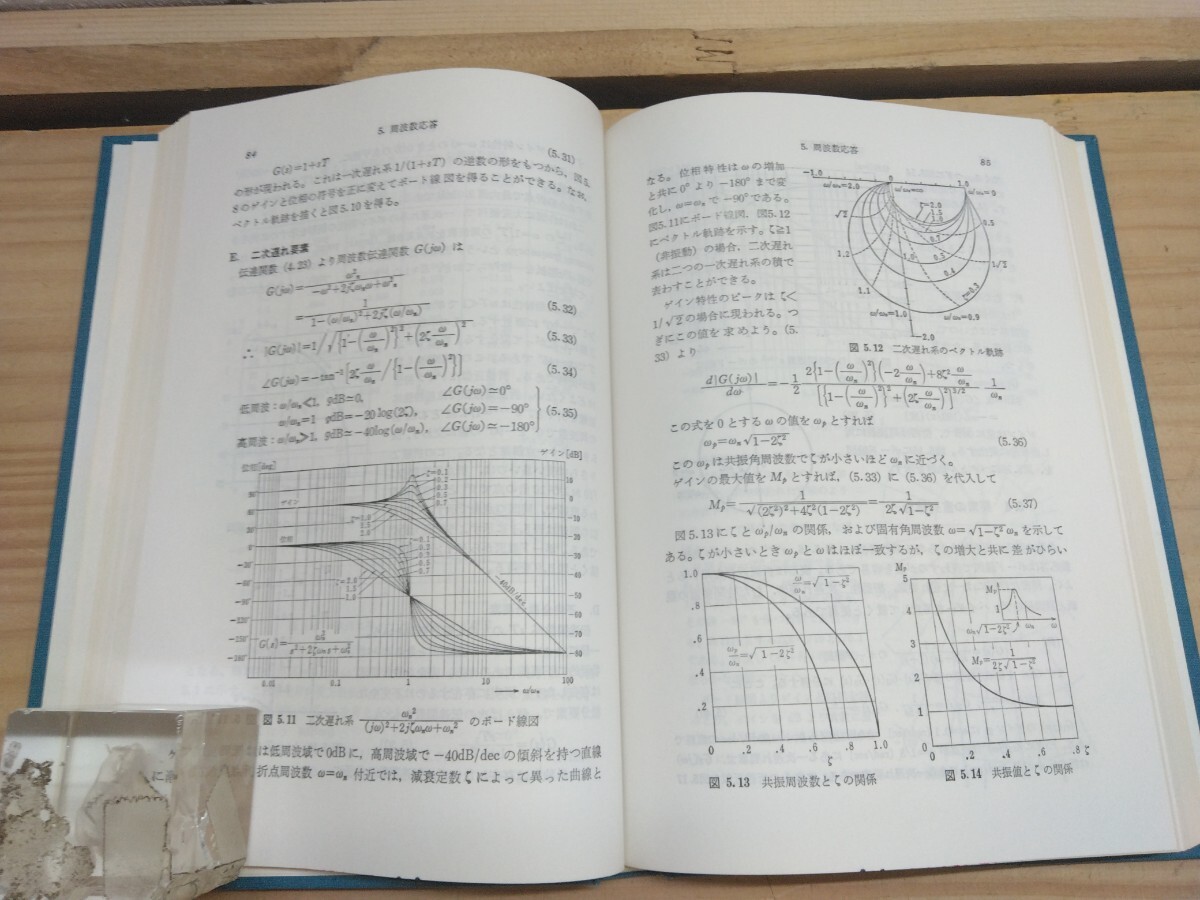 84
5. 周波数応答
G(s)=1+sT (5.31)
の形が現われる。これは一次遅れ系 1/(1+sT) の逆数の形をもつから，図5.
8のゲインと位相の符号を正に変えてボード線図を得ることができる。なお，
ベクトル軌跡を描くと図5.10を得る。
E. 二次遅れ要素
伝達関数 (4.23) より周波数伝達関数 G(jω) は
G(jω)=ωn²/(−ω²+2jζωnω+ωn²)
=1/(1−(ω/ωn)²+2jζ(ω/ωn)) (5.32)
∴ |G(jω)|=1/√({1−(ω/ωn)²}²+(2ζω/ωn)²) (5.33)
∠G(jω)=−tan⁻¹[2ζω/ωn/{1−(ω/ωn)²}] (5.34)
低周波：ω/ωn<1, gdB≃0, ∠G(jω)≃0°
ω/ωn=1 gdB=−20log(2ζ), ∠G(jω)=−90° (5.35)
高周波：ω/ωn>1, gdB≃−40log(ω/ωn), ∠G(jω)≃−180°
位相[deg] ゲイン[dB]
ゲイン
位相
ζ=0.1
0.2
0.3
0.5
0.7
ζ=1.0
1.5
2.0
10
0
−10
−20
−30
−40
−50
−60
−70
−80
−40dB/dec
G(s)=ωn²/(s²+2ζωns+ωn²)
0.01 0.1 1 10 100
→ω/ωn
図5.11 二次遅れ系 ωn²/((jω)²+2jζωnω+ωn²) のボード線図
は低周波域で0dBに，高周波域で−40dB/decの傾斜を持つ直線
折点周波数 ω=ωn 付近では，減衰定数ζによって異った曲線と
5. 周波数応答
85
なる。位相特性はωの増加
と共に0°より−180°まで変
化し，ω=ωnで−90°である。
図5.11にボード線図，図5.12
にベクトル軌跡を示す。ζ≧1
(非振動) の場合，二次遅れ
系は二つの一次遅れ系の積で
表わすことができる。
ゲイン特性のピークはζ<
1/√2の場合に現われる。つ
ぎにこの値を求めよう。(5.
33) より
−1.0 0 1.0
ω/ωn=2.0 ω/ωn=∞ ω/ωn=0
ζ=2.0
√2
0.5
1.2
1/√2
1.1
0.4
ζ=0.3
ω/ωn=1.0 ω/ωn=0.9
−2.0
図5.12 二次遅れ系のベクトル軌跡
d|G(jω)|/dω=−1/2 2{1−(ω/ωn)²}(−2ω/ωn)+8ζ²ω/ωn/[{1−(ω/ωn)²}²+(2ζω/ωn)²]^3/2 1/ωn
この式を0とするωの値をωpとすれば
ωp=ωn√(1−2ζ²) (5.36)
このωpは共振角周波数でζが小さいほどωnに近づく。
ゲインの最大値をMpとすれば，(5.33) に (5.36) を代入して
Mp=1/√((2ζ²)²+4ζ²(1−2ζ²))=1/(2ζ√(1−ζ²)) (5.37)
図5.13にζとωp/ωnの関係，および固有角周波数 ω=√(1−ζ²)ωnを示して
ある。ζが小さいときωpとωはほぼ一致するが，ζの増大と共に差がひらい
1.0
.8
.6
.4
.2
ω/ωn=√(1−ζ²)
ωp/ωn=√(1−2ζ²)
0 .2 .4 .6 .8 1.0
ζ
図5.13 共振周波数とζの関係
Mp
5
4
3
2
1
0
Mp
1
ωn
ω
ωn√(1−2ζ²)
Mp=1/(2ζ√(1−ζ²))
.2 .4 .6 .8 ζ
図5.14 共振値とζの関係